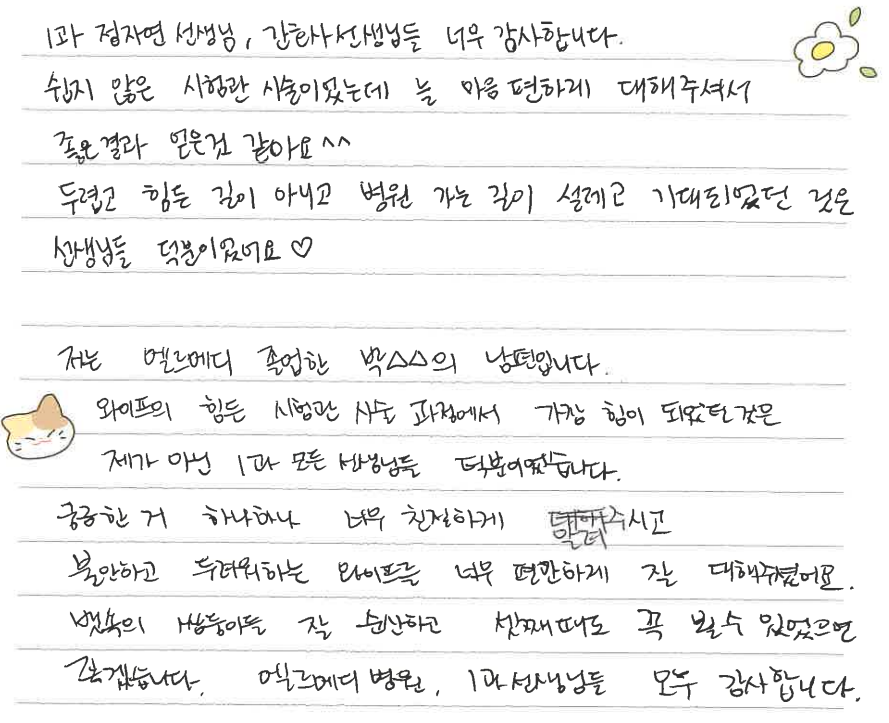 1과 정자연 선생님, 간호사선생님들 너무 감사합니다.
쉽지 않은 시험관 시술이었는데 늘 마음 편하게 대해주셔서
좋은결과 얻은것 같아요^^
두렵고 힘든 길이 아니고 병원 가는 길이 설레고 기대되었던 것은
선생님들 덕분이었어요♡
저는 엘르메디 졸업한 박△△의 남편입니다.
와이프의 힘든 시험관 시술 과정에서 가장 힘이 되었던것은
제가 아닌 1과 모든 선생님들 덕분이었습니다.
궁금한 거 하나하나 너무 친절하게 알려주시고
불안하고 두려워하는 와이프를 너무 편안하게 잘 대해주셨어요.
뱃속의 쌍둥이들 잘 순산하고 셋째때도 꼭 뵐수 있었으면
좋겠습니다. 엘르메디병원, 1과선생님들 모두 감사합니다.